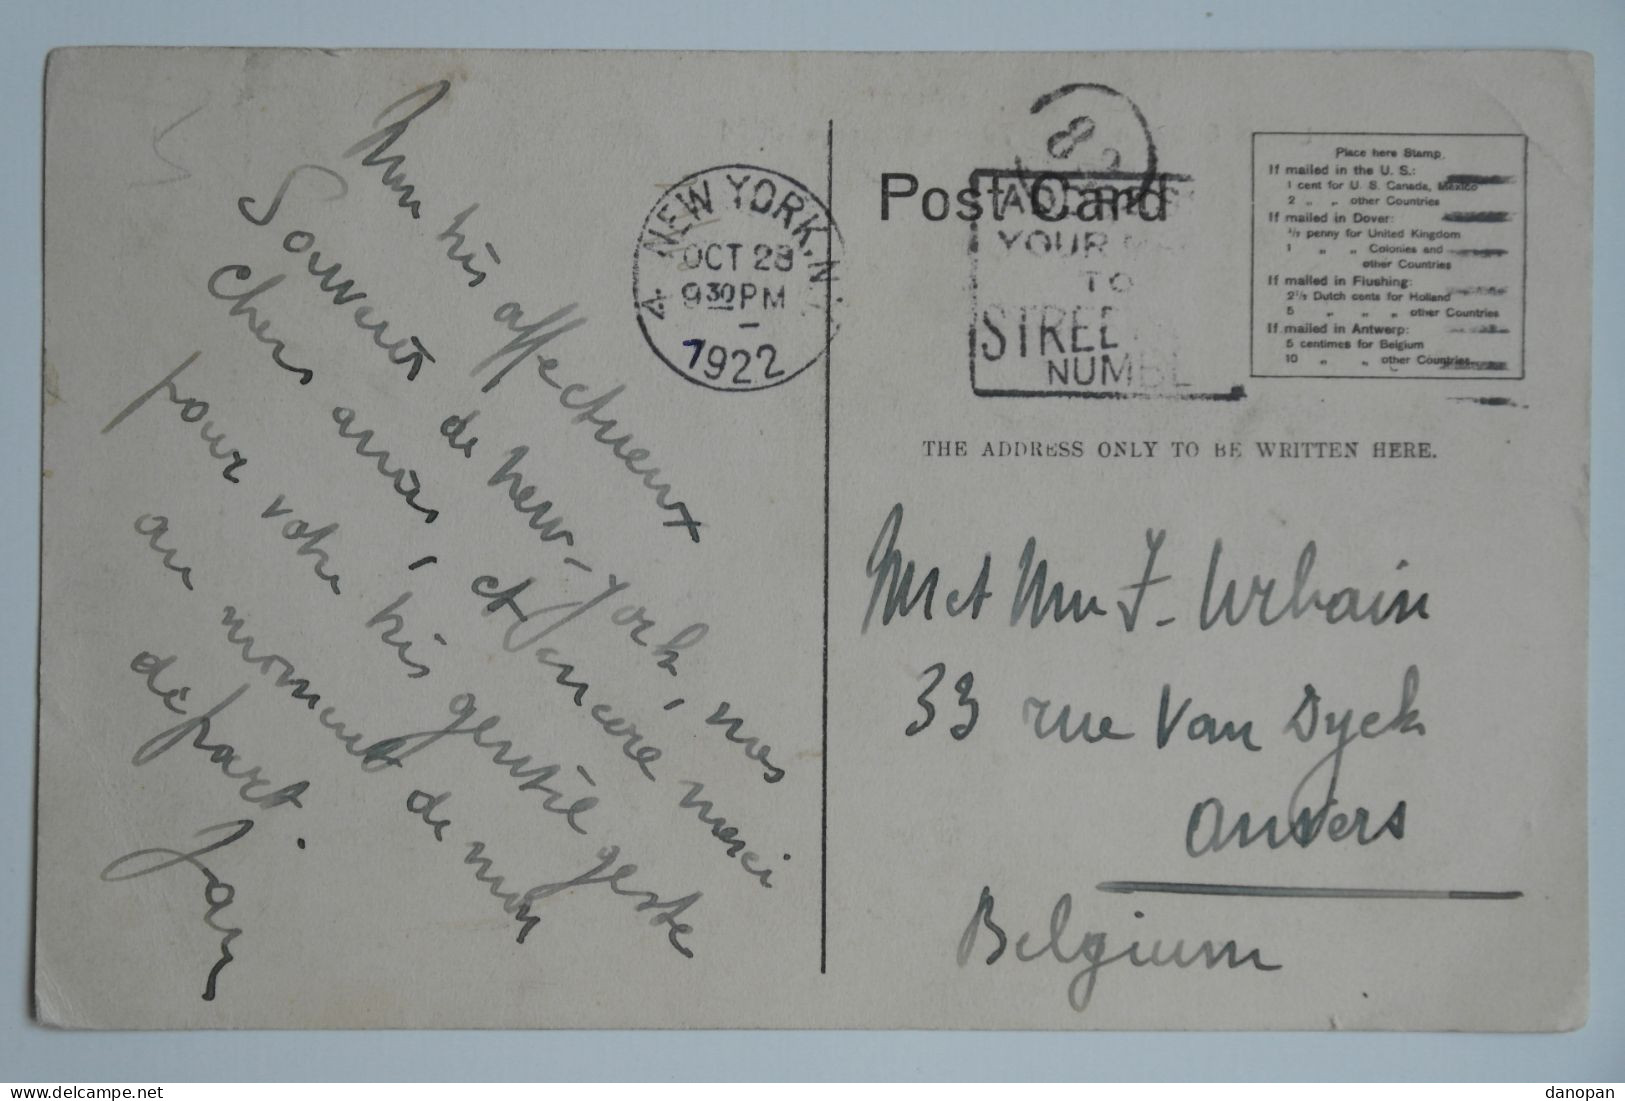 Mon très affectueux
Souvenir de New-York, nos
chers amis, et encore merci
pour votre très gentil geste
au moment de mon
départ.
A NEW YORK, N.Y.
OCT 28
930 PM
1922
8
Post Card
ADDRESS
YOUR MA
TO
STREE
NUMBE
Place here Stamp.
If mailed in the U. S.:
1 cent for U. S. Canada, Mexico
2 " " other Countries
If mailed in Dover:
1/2 penny for United Kingdom
1 " " Colonies and
other Countries
If mailed in Flushing:
2 1/2 Dutch cents for Holland
5 " " " other Countries
If mailed in Antwerp:
5 centimes for Belgium
10 " " other Countries
THE ADDRESS ONLY TO BE WRITTEN HERE.
M et Mme J. Urbain
33 rue Van Dyck
Anvers
Belgium
delcampe.net
danopan